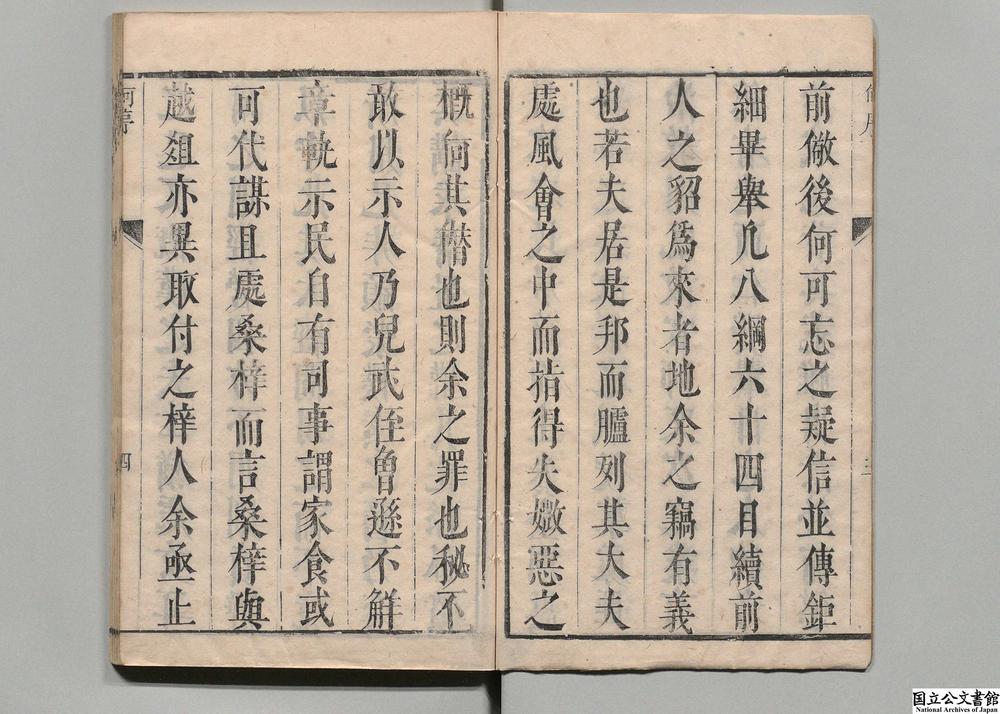 前倣後何可忘之疑信並傳鉅
細畢舉凢八綱六十四目續前
人之貂爲來者地余之竊有義
也若夫居是邦而臚列其大夫
處風會之中而指得失媺惡之
槪何其僭也則余之罪也秘不
敢以示人乃兒武侄魯遜不觧
章軌示民自有司事謂家食或
可代謀且處桑梓而言桑梓與
越爼亦異取付之梓人余亟止
何序
四
国立公文書館
National Archives of Japan